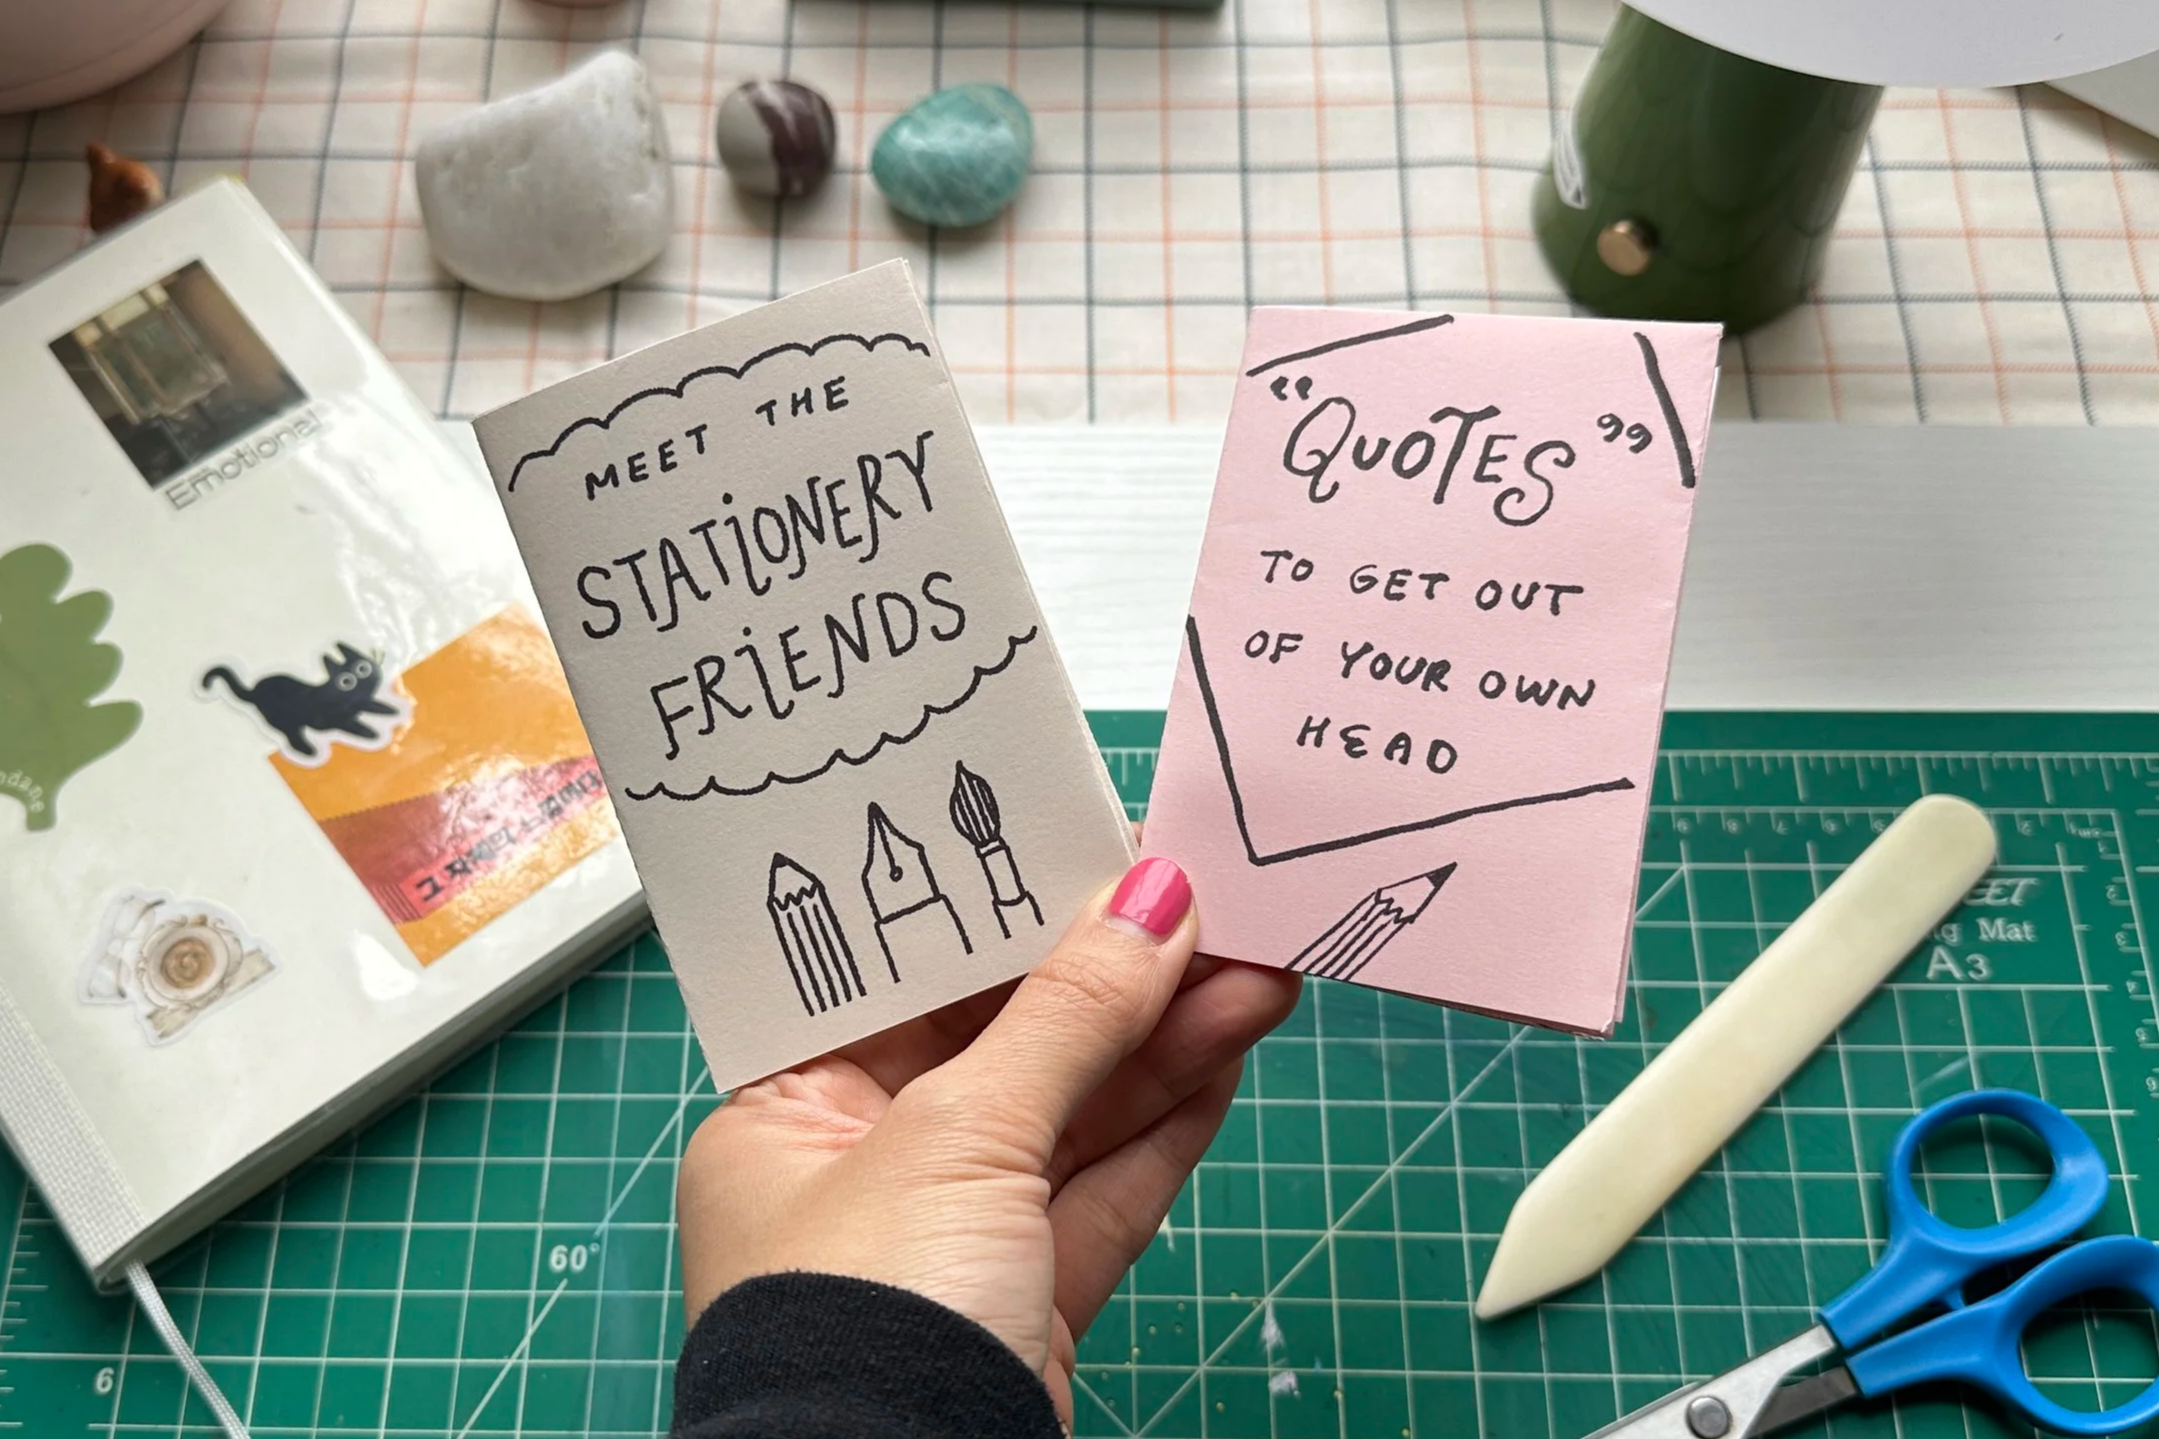 Emotional
MEET THE
STATIONERY
FRIENDS
"QUOTES"
TO GET OUT
OF YOUR OWN
HEAD
Mat
A3
60°
6